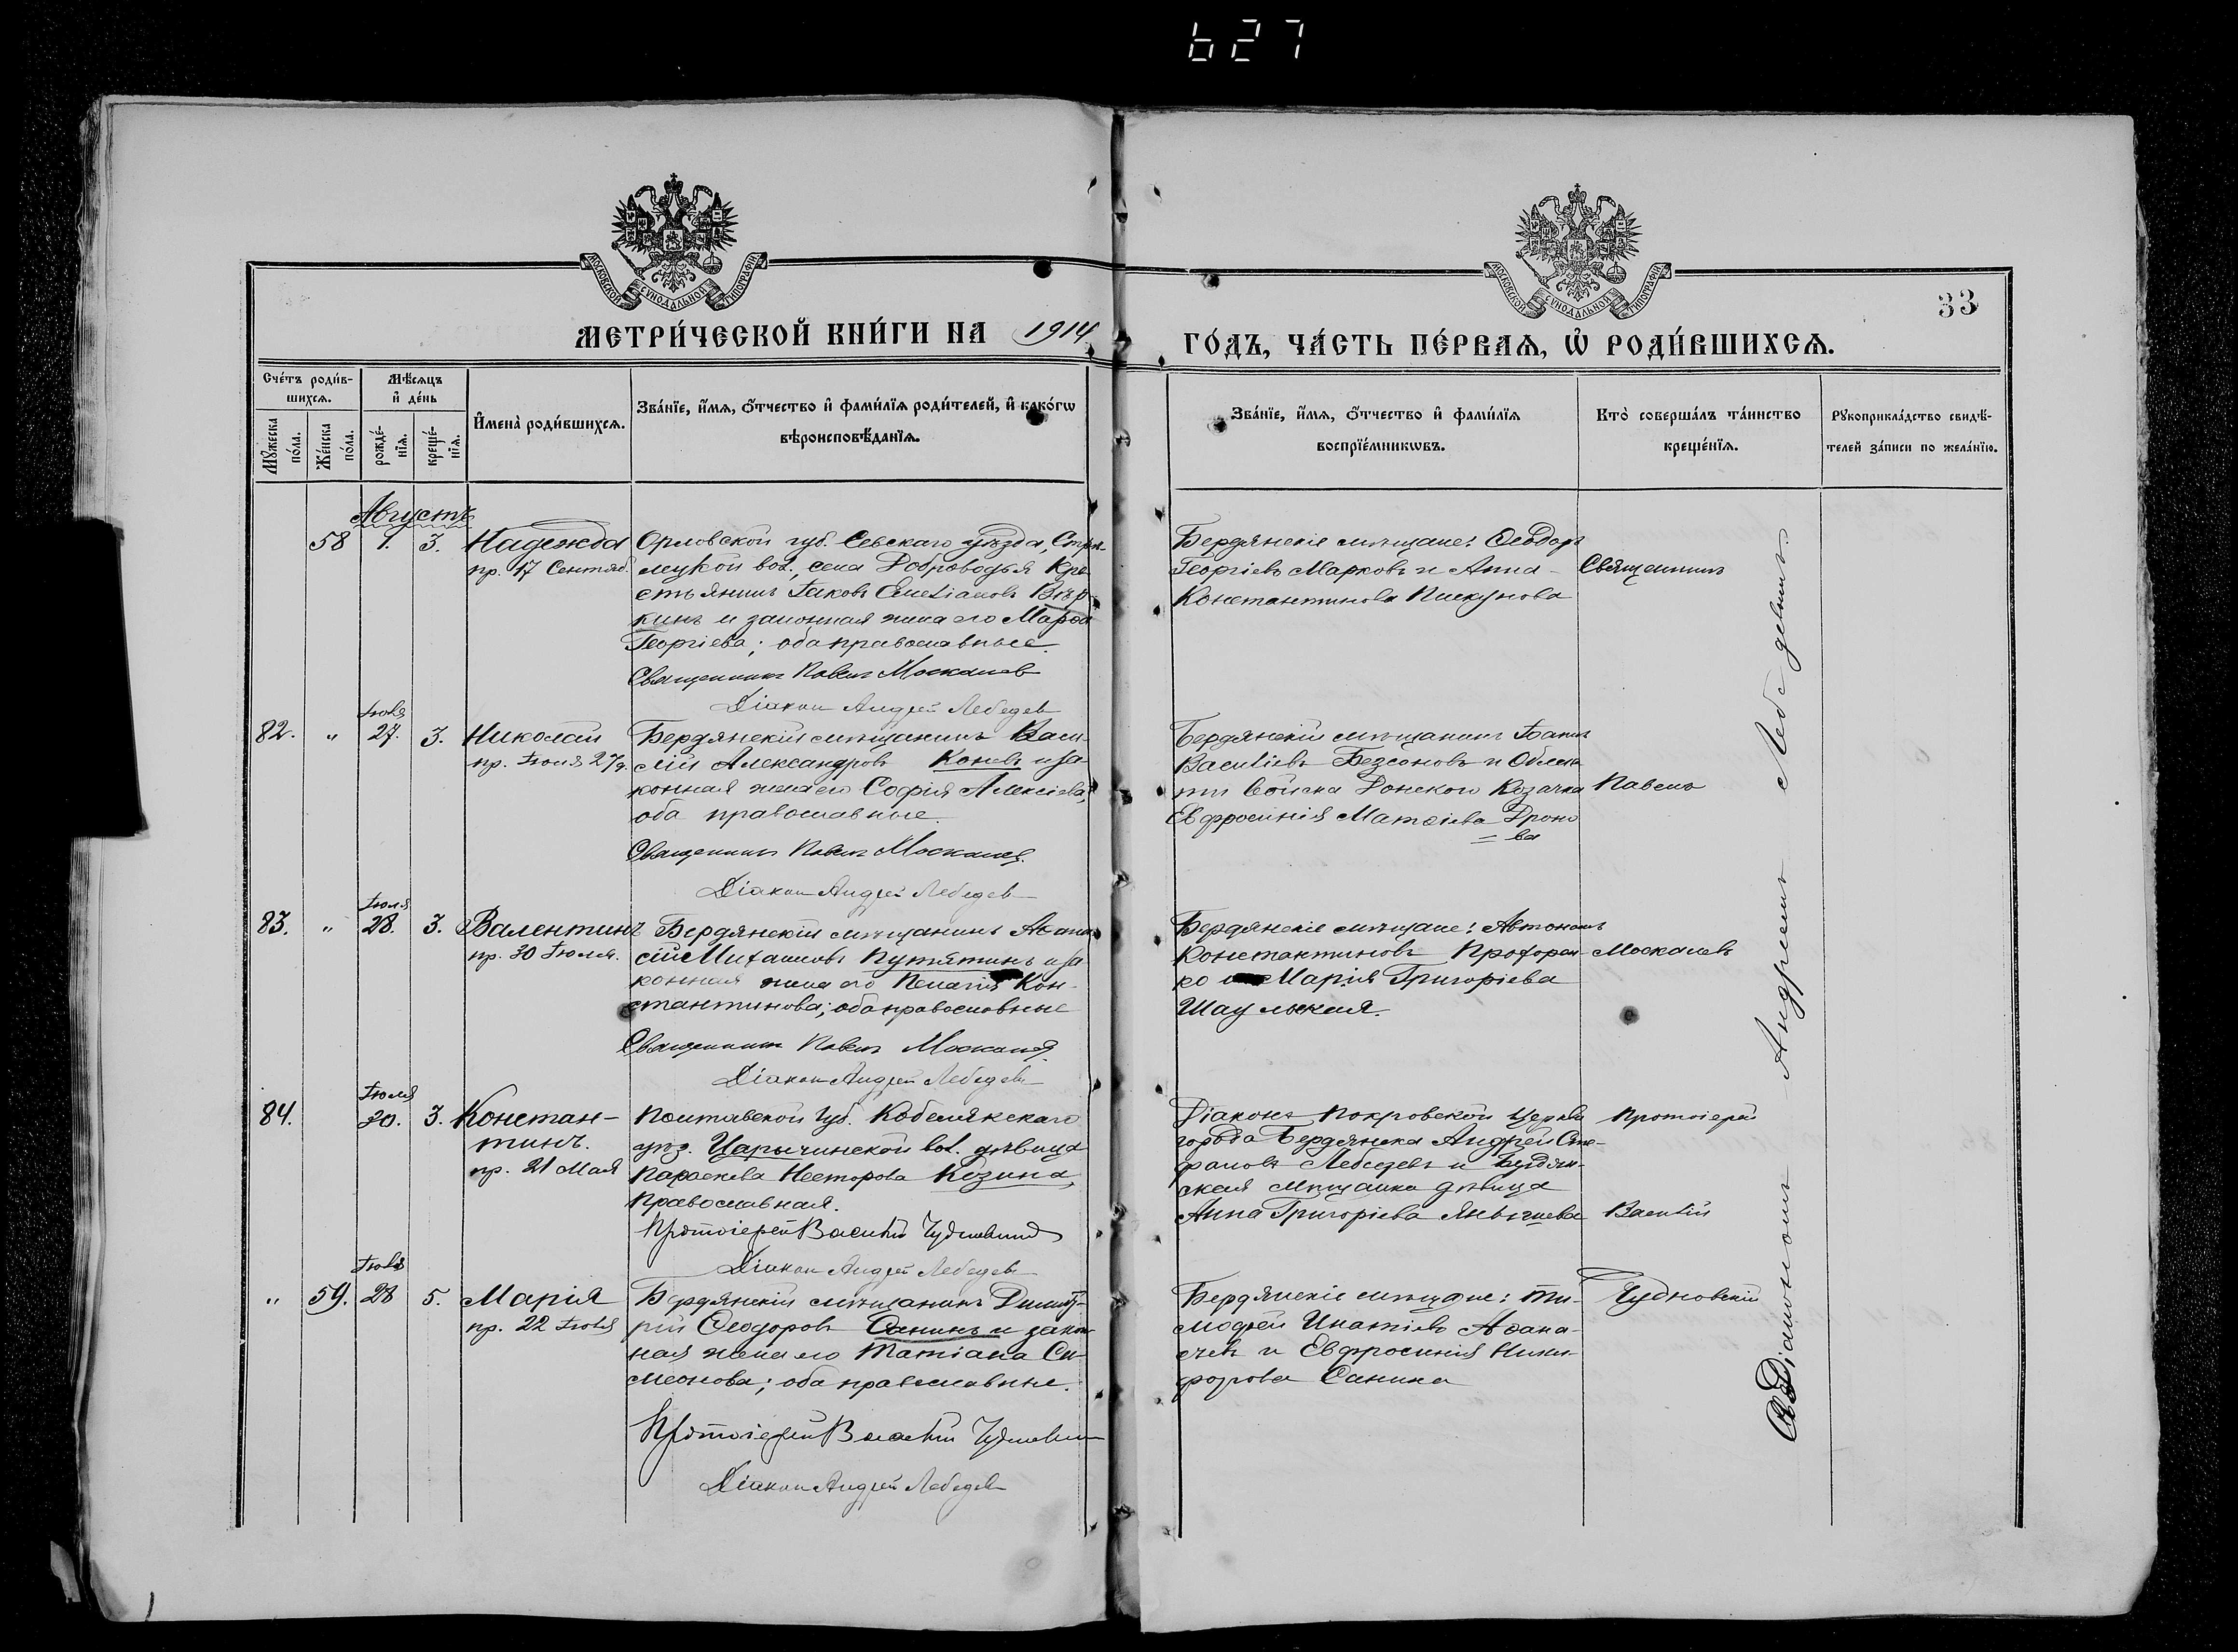 627
МОСКОВСКОЙ СѴНОДАЛЬНОЙ ТИПОГРАФІИ
МОСКОВСКОЙ СѴНОДАЛЬНОЙ ТИПОГРАФІИ
33
МЕТРИ́ЧЕСКОЙ КНИ́ГИ НА 1914
ГО́ДЪ, ЧА́СТЬ ПЕ́РВАѦ, Ѡ҆ РОДИ́ВШИХСѦ.
Сче́тъ роди́в-
шихсѧ.
Мꙋ́жеска по́ла.
Же́нска по́ла.
Мѣ́сѧцъ
и҆ де́нь
рожде́-
нїѧ.
креще́-
нїѧ.
И҆мена̀ роди́вшихсѧ.
Зва́нїе, и҆́мѧ, ѻ҆́тчество и҆ фами́лїѧ роди́телей, и҆ како́гѡ
вѣроисповѣ́данїѧ.
Зва́нїе, и҆́мѧ, ѻ҆́тчество и҆ фами́лїѧ
воспрїе́мникѡвъ.
Кто̀ соверша́лъ та́инство
креще́нїѧ.
Рꙋкоприкла́дство свидѣ́-
телей за́писи по жела́нїю.
Августъ
58 1. 3. Надежда
пр. 17 Сентяб.
Орловской губ. Севскаго уѣзда, Стрѣ-
лецкой вол., села Доброводья Кре-
стьянинъ Іаковъ Емеліановъ Вѣр-
кинъ и законная жена его Марѳа
Георгіева; оба православные.
Священникъ Павелъ Москалев
Діакон Андрей Лебедев
Бердянскіе мѣщане: Ѳеодоръ
Георгіевъ Марковъ и Анна
Константинова Пискунова
Священникъ
Іюля
82. " 27. 3. Николай
пр. Іюля 27д.
Бердянскій мѣщанинъ Васи-
лій Александровъ Коневъ и за-
конная жена его Софія Алексіева,
оба православные.
Священникъ Павелъ Москалев
Діакон Андрей Лебедев
Бердянскій мѣщанинъ Іоаннъ
Василіевъ Безсоновъ и Облас-
ти Войска Донского Козачка
Евфросинія Матѳіева Дроно
= ва
Павелъ
Іюля
83. " 28. 3. Валентинъ
пр. 30 Іюля.
Бердянскій мѣщанинъ Аѳана-
сій Михаиловъ Путятинъ и за-
конная жена его Пелагія Кон-
стантинова; оба православные
Священникъ Павелъ Москалев
Діакон Андрей Лебедев
Бердянскіе мѣщане: Автономъ
Константиновъ Прохорен-
ко и Марія Григоріева
Шаульская.
Москалевъ
Іюля
84. 30. 3. Констан-
тинъ.
пр. 21 Мая
Полтавской Губ. Кобелякскаго
уѣз. Царичинской вол. дѣвица
Параскева Несторова Козина,
православная.
Протоіерей Василій Чудновский
Діакон Андрей Лебедев
Діаконъ Покровской Церкви
города Бердянска Андрей Сте-
фановъ Лебедевъ и Бердян-
ская мѣщанка дѣвица
Анна Григоріева
Протоіерей
Василій
Іюля
" 59. 28 5. Марія
пр. 22 Іюля
Бердянскій мѣщанинъ Димит-
рій Ѳеодоровъ Санинъ и закон-
ная жена его Татіана Си-
меонова; оба православные.
Протоіерей Василій Чудновский
Діакон Андрей Лебедев
Бердянскіе мѣщане: Ти-
моѳей Игнатіевъ Аѳана-
сьев и Евфросинія Ники-
форова Санина
Чудновскій
Діакономъ Андреемъ Лебедевымъ.